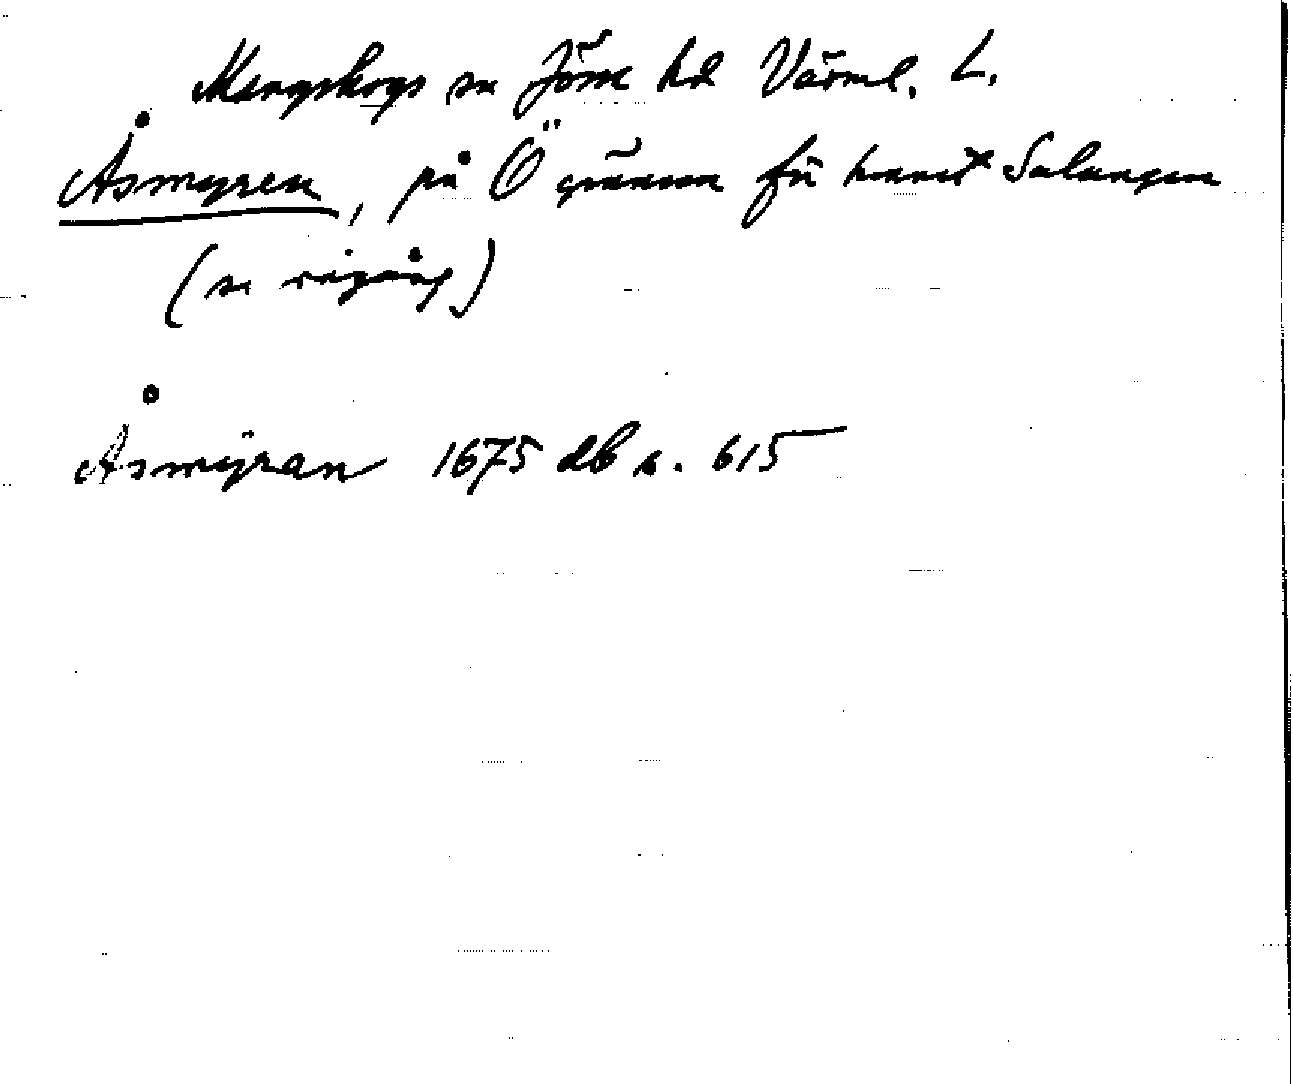 Mangskogs sn Jösse hd Värml. L.
Åsmyren, på Ö gränsen för hemmet Salungen
(se rågång)
Åsmyran 1675 db s. 615